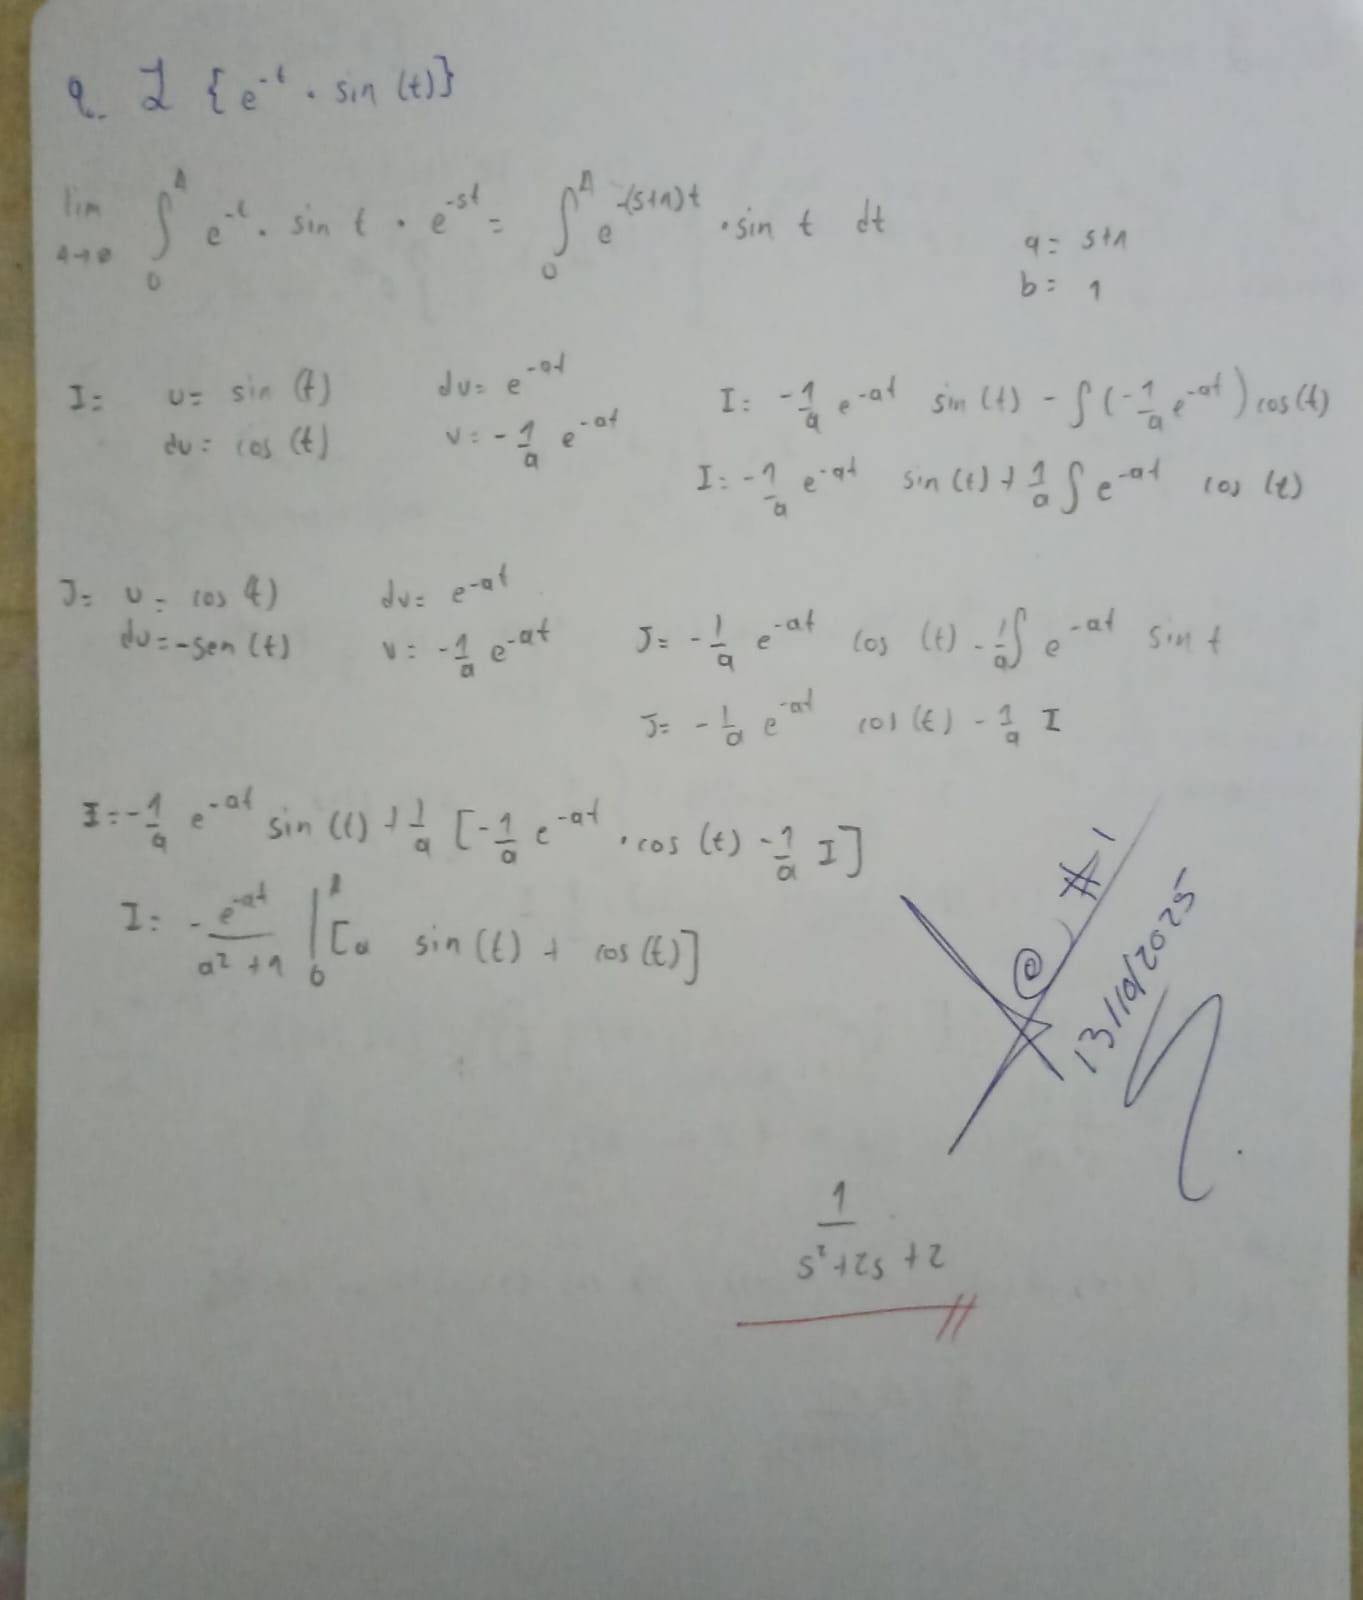 9. L {e^-t . sin (t)}
lim A→∞ ∫₀^A e^-t . sin t . e^-st = ∫₀^A e^-(s+1)t . sin t dt
a = s+1
b = 1
I= u= sin (t) dv= e^-at I: -1/a e^-at sin (t) - ∫(-1/a e^-at) cos(t)
du= cos (t) v= -1/a e^-at I: -1/a e^-at sin (t) + 1/a ∫ e^-at cos (t)
J= u= cos (t) dv= e^-at
du= -sen (t) v= -1/a e^-at J= -1/a e^-at cos (t) - 1/a ∫ e^-at sin t
J= -1/a e^-at cos (t) - 1/a I
I = -1/a e^-at sin (t) + 1/a [-1/a e^-at . cos (t) - 1/a I]
I: -e^-at/(a² + 1) |₀^A [a sin (t) + cos (t)]
@ #1
13/10/2025
1/(s² + 2s + 2)